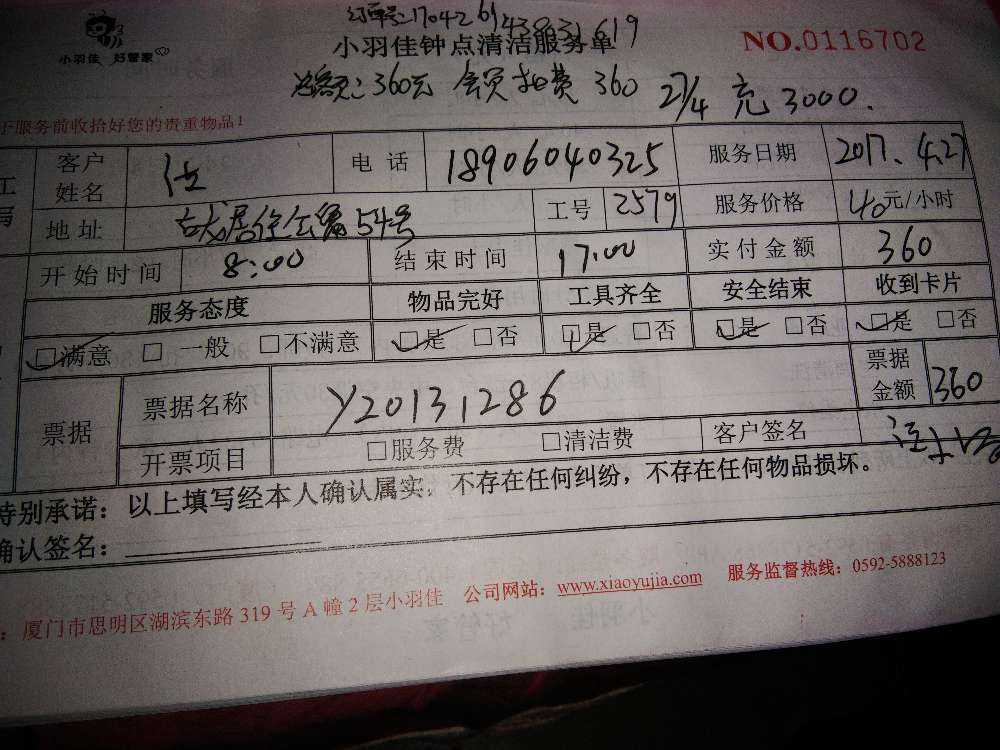 订单号:1704261438031619
小羽佳 好管家
小羽佳钟点清洁服务单
NO.0116702
总额:360元 会员扣费 360 27/4 充 3000.
于服务前收拾好您的贵重物品!
客户姓名 电话 18906040325 服务日期 2017.4.27
地址 54号 工号 2579 服务价格 40元/小时
开始时间 8:00 结束时间 17:00 实付金额 360
服务态度 物品完好 工具齐全 安全结束 收到卡片
☑满意 □一般 □不满意 ☑是 □否 ☑是 □否 ☑是 □否 ☑是 □否
票据 票据名称 Y20131286 票据金额 360
开票项目 □服务费 □清洁费 客户签名
特别承诺:以上填写经本人确认属实,不存在任何纠纷,不存在任何物品损坏。
确认签名:
:厦门市思明区湖滨东路319号A幢2层小羽佳 公司网站:www.xiaoyujia.com 服务监督热线:0592-5888123